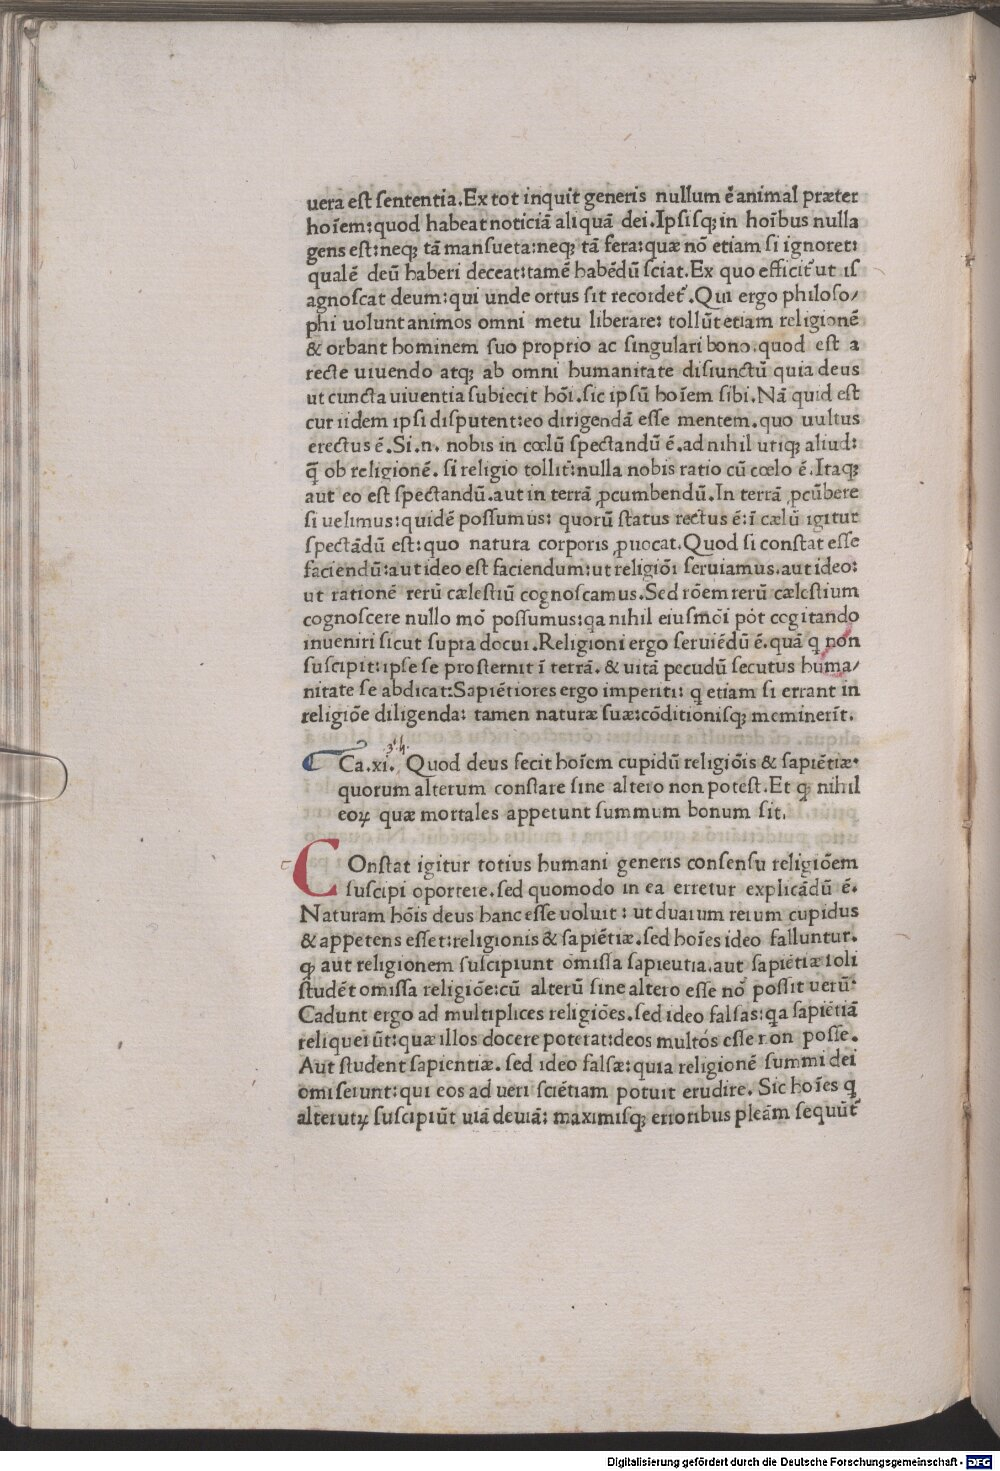 uera est sententia.Ex tot inquit generis nullum ē animal præter
hoīem:quod habeat noticiā aliquā dei.Ipsisq; in hoībus nulla
gens est:neq; tā mansueta:neq; tā fera:quæ nō etiam si ignoret:
qualē deū haberi deceat:tamē habēdū sciat.Ex quo efficit᷑ ut is
agnoscat deum:qui unde ortus sit recordet᷑.Qui ergo philoso/
phi uolunt animos omni metu liberare: tollūt etiam religionē
& orbant hominem suo proprio ac singulari bono.quod est a
recte uiuendo atq; ab omni humanitate disiunctū quia deus
ut cuncta uiuentia subiecit hōi.sic ipsū hoīem sibi.Nā quid est
cur iidem ipsi disputent:eo dirigendā esse mentem.quo uultus
erectus ē.Si.n. nobis in cœlū spectandū ē.ad nihil utiq; aliud:
q̄ ob religionē. si religio tollit᷑:nulla nobis ratio cū cœlo ē.Itaq;
aut eo est spectandū.aut in terrā ꝓcumbendū.In terrā ꝓcūbere
si uelimus:quidē possumus: quorū status rectus ē:ī cælū igitur
spectādū est:quo natura corporis ꝓuocat.Quod si constat esse
faciendū:aut ideo est faciendum:ut religiōi seruiamus.aut ideo:
ut rationē rerū cælestiū cognoscamus.Sed rōem rerū cælestium
cognoscere nullo mō possumus:qa nihil eiusmōi pōt cogitando
inueniri sicut supra docui.Religioni ergo seruiēdū ē.quā q non
suscipit:ipse se prosternit ī terrā. & uitā pecudū secutus huma/
nitate se abdicat:Sapiētiores ergo imperiti: q etiam si errant in
religiōe diligenda: tamen naturæ suæ:cōditionisq; meminerīt.
Ca.xi. Quod deus fecit hoīem cupidū religiōis & sapiētiæ.
quorum alterum constare sine altero non potest.Et ꝙ nihil
eoꝝ quæ mortales appetunt summum bonum sit.
COnstat igitur totius humani generis consensu religiōem
suscipi oportere.sed quomodo in ea erretur explicādū ē.
Naturam hōis deus hanc esse uoluit: ut duarum rerum cupidus
& appetens esset:religionis & sapiētiæ.sed hoīes ideo falluntur.
ꝙ aut religionem suscipiunt omissa sapieutia.aut sapiētiæ soli
studēt omissa religiōe:cū alterū sine altero esse nō possit uerū.
Cadunt ergo ad multiplices religiōes.sed ideo falsas:qa sapiētiā
reliquerūt:quæ illos docere poterat:deos multos esse non posse.
Aut student sapientiæ. sed ideo falsæ:quia religionē summi dei
omiserunt:qui eos ad ueri sciētiam potuit erudire. Sic hoīes q
alterutꝝ suscipiūt uiā deuiā: maximisq; erroribus pleām sequūt᷑
Digitalisierung gefördert durch die Deutsche Forschungsgemeinschaft - DFG